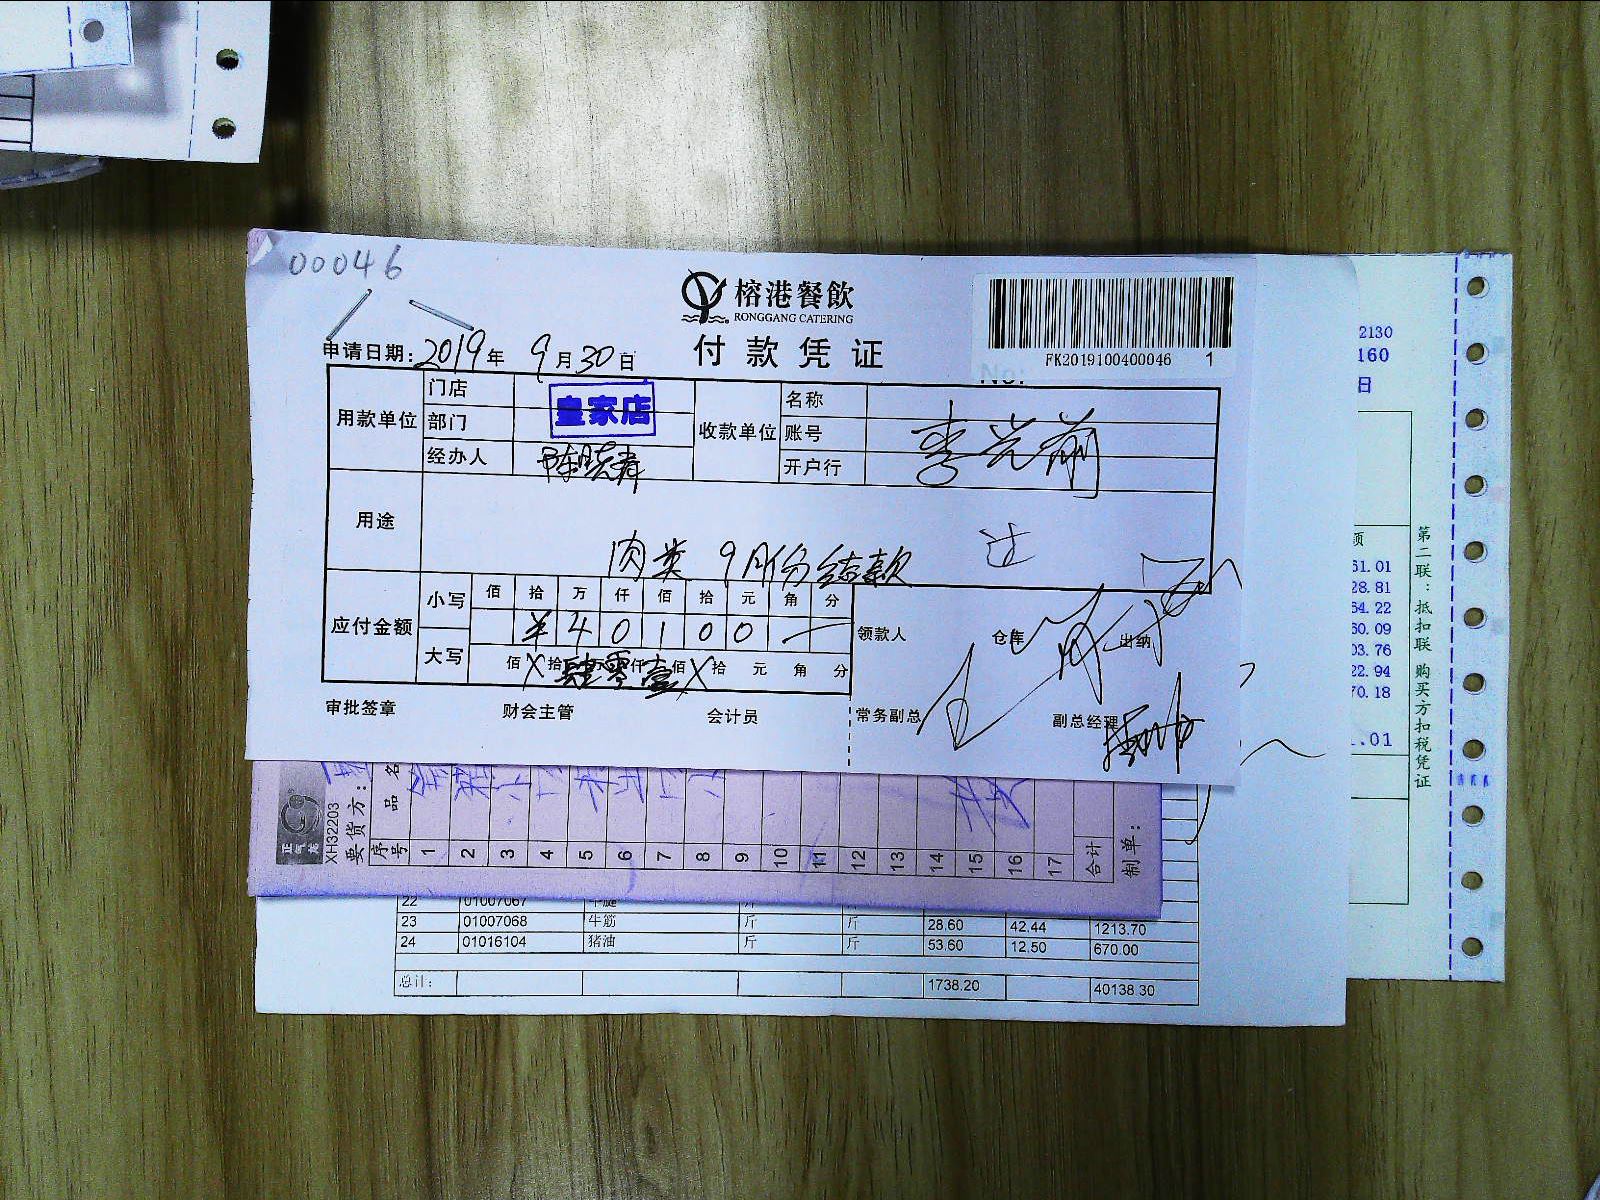 00046
榕港餐飲
RONGGANG CATERING
付款凭证
FK2019100400046 1
No:
申请日期：2019年 9月30日
用款单位 门店 皇家店 收款单位 名称
部门 账号 李光前
经办人 开户行
用途 肉类 9月份结款
应付金额 小写 佰 拾 万 仟 佰 拾 元 角 分
¥ 4 0 1 0 0 —
大写 佰 X 拾 肆 万 零 仟 壹 佰 X 拾 元 角 分
领款人 仓库 出纳
审批签章 财会主管 会计员 常务副总 副总经理
正气龙
XH32203
要货方：
序号 品名
1 2 3 4 5 6 7 8 9 10 11 12 13 14 15 16 17 合计
制单：
22 01007067 斤 斤
23 01007068 牛筋 斤 斤 28.60 42.44 1213.70
24 01016104 猪油 斤 斤 53.60 12.50 670.00
总计： 1738.20 40138.30
2130
160
日
额
61.01
28.81
64.22
60.09
03.76
22.94
70.18
.01
第二联：抵扣联 购买方扣税凭证